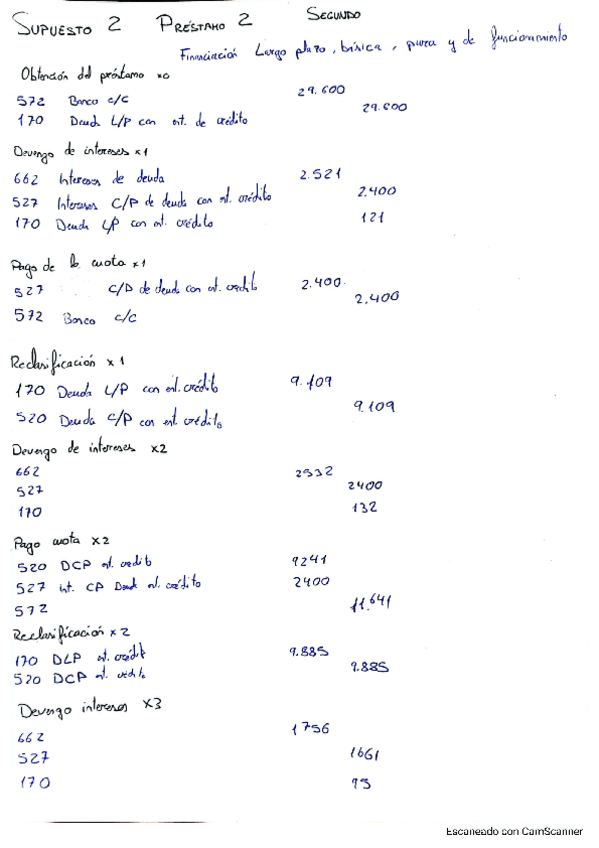 SUPUESTO 2 PRÉSTAMO 2 SEGUNDO
Financiación Largo plazo, básica, pura y de funcionamiento
Obtención del préstamo x0
572 Banco c/c 29.600
170 Deuda L/P con ent. de crédito 29.600
Devengo de intereses x1
662 Intereses de deuda 2.521
527 Intereses C/P de deuda con ent. crédito 2.400
170 Deuda L/P con ent. crédito 121
Pago de la cuota x1
527 C/P de deuda con ent. crédito 2.400
572 Banco c/c 2.400
Reclasificación x1
170 Deuda L/P con ent. crédito 9.109
520 Deuda C/P con ent. crédito 9.109
Devengo de intereses x2
662 2532
527 2400
170 132
Pago cuota x2
520 DCP ent. credito 9241
527 int. CP Deud ent. crédito 2400
572 11.641
Reclasificación x2
170 DLP ent. crédit 9.885
520 DCP ent. crédito 9.885
Devengo intereses x3
662 1756
527 1661
170 95
Escaneado con CamScanner